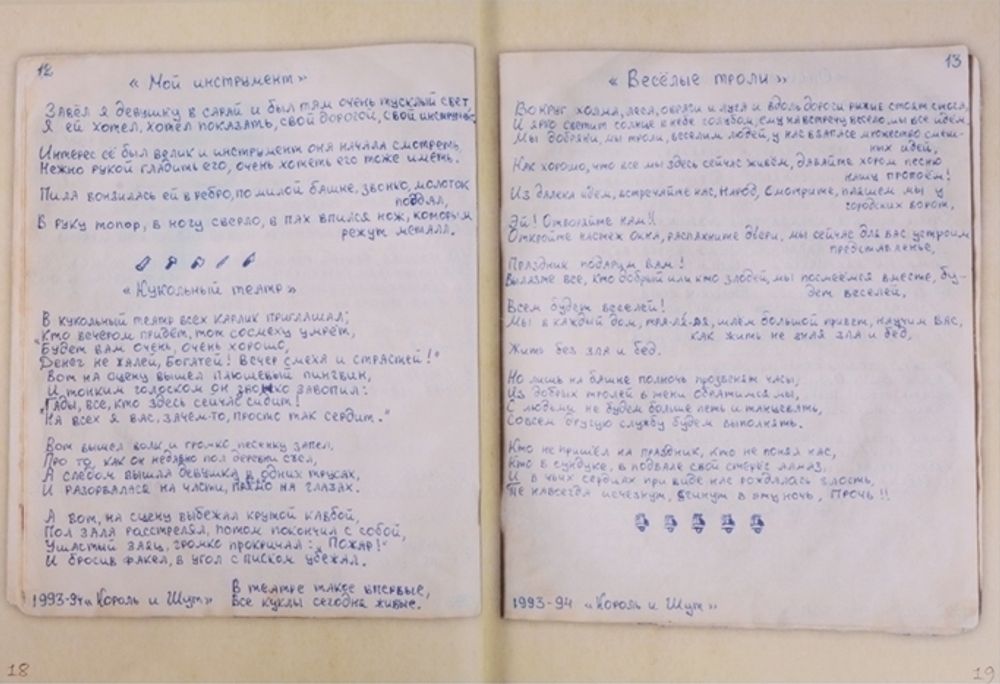 12
«Мой инструмент»
Завёл я девушку в сарай и был там очень тусклый свет,
Я ей хотел, хотел показать, свой дорогой, свой инструмент.
Интерес её был велик и инструмент она начала смотреть,
Нежно рукой гладить его, очень хотеть его тоже иметь.
Пила вонзилась ей в ребро, по милой башне, звонко, молоток
поддял,
В руку топор, в ногу сверло, в пах впился нож, которым
режут металл.
«Кукольный театр»
В кукольный театр всех карлик приглашал;
"Кто вечером придёт, тот со смеху умрёт,
Будет вам очень, очень хорошо,
Денег не жалей, богатей! Вечер смеха и страстей!"
Вот на сцену вышел плюшевый пингвин,
И тонким голоском он звонко завопил:
"Гады, все, кто здесь сейчас сидит!
Я на всех я вас, зачем-то, просто так сердит."
Вот вышел волк и громко песенку запел,
Про то, как он недавно пол деревни съел,
А следом вышла девушка в одних трусах,
И разорвалась на части, прямо на глазах.
А вот, на сцену выбежал крутой кавбой,
Пол зала расстрелял, потом покончил с собой,
Ушастый заяц, громко прокричал: "Пожар!"
И бросив факел, в угол с писком убежал.
В театре такое впервые,
Все куклы сегодня живые.
1993-94 «Король и Шут»
18
13
«Весёлые троли»
Вокруг холма, леса, овраги и луга и вдоль дороги рыжие стоят стога,
И ярко светит солнце в небе голубом, ему навстречу весело, мы все идём.
Мы добряки, мы троли, веселим людей, у нас в запасе множество смеш-
ных идей,
Как хорошо, что все мы здесь сейчас живём, давайте хором песню
нашу пропоём!
Из далека идем, встречайте нас, народ, смотрите, пляшем мы у
городских ворот,
Эй! Отворяйте нам!!
Откройте настеж окна, распахните двери, мы сейчас для вас устроим
представленье,
Праздник подарим вам!
Вылазте все, кто добрый или кто злодей, мы посмеёмся вместе, бу-
дет веселей,
Всем будет веселей!
Мы в каждый дом, тра-ля-ля, шлём большой привет, научим вас,
как жить не зная зла и бед,
Жить без зла и бед.
Но лишь на башне полночь прозвенят часы,
Из добрых тролей в тени обратимся мы,
С людьми не будем больше петь и танцевать,
Совсем другую службу будем выполнять.
Кто не пришёл на праздник, кто не понял нас,
Кто в сундуке, в подвале свой стерёг алмаз,
И в чьих сердцах при виде нас рождалась злость,
Те навсегда исчезнут, сгинут в эту ночь, Прочь!!
1993-94 «Король и Шут»
19